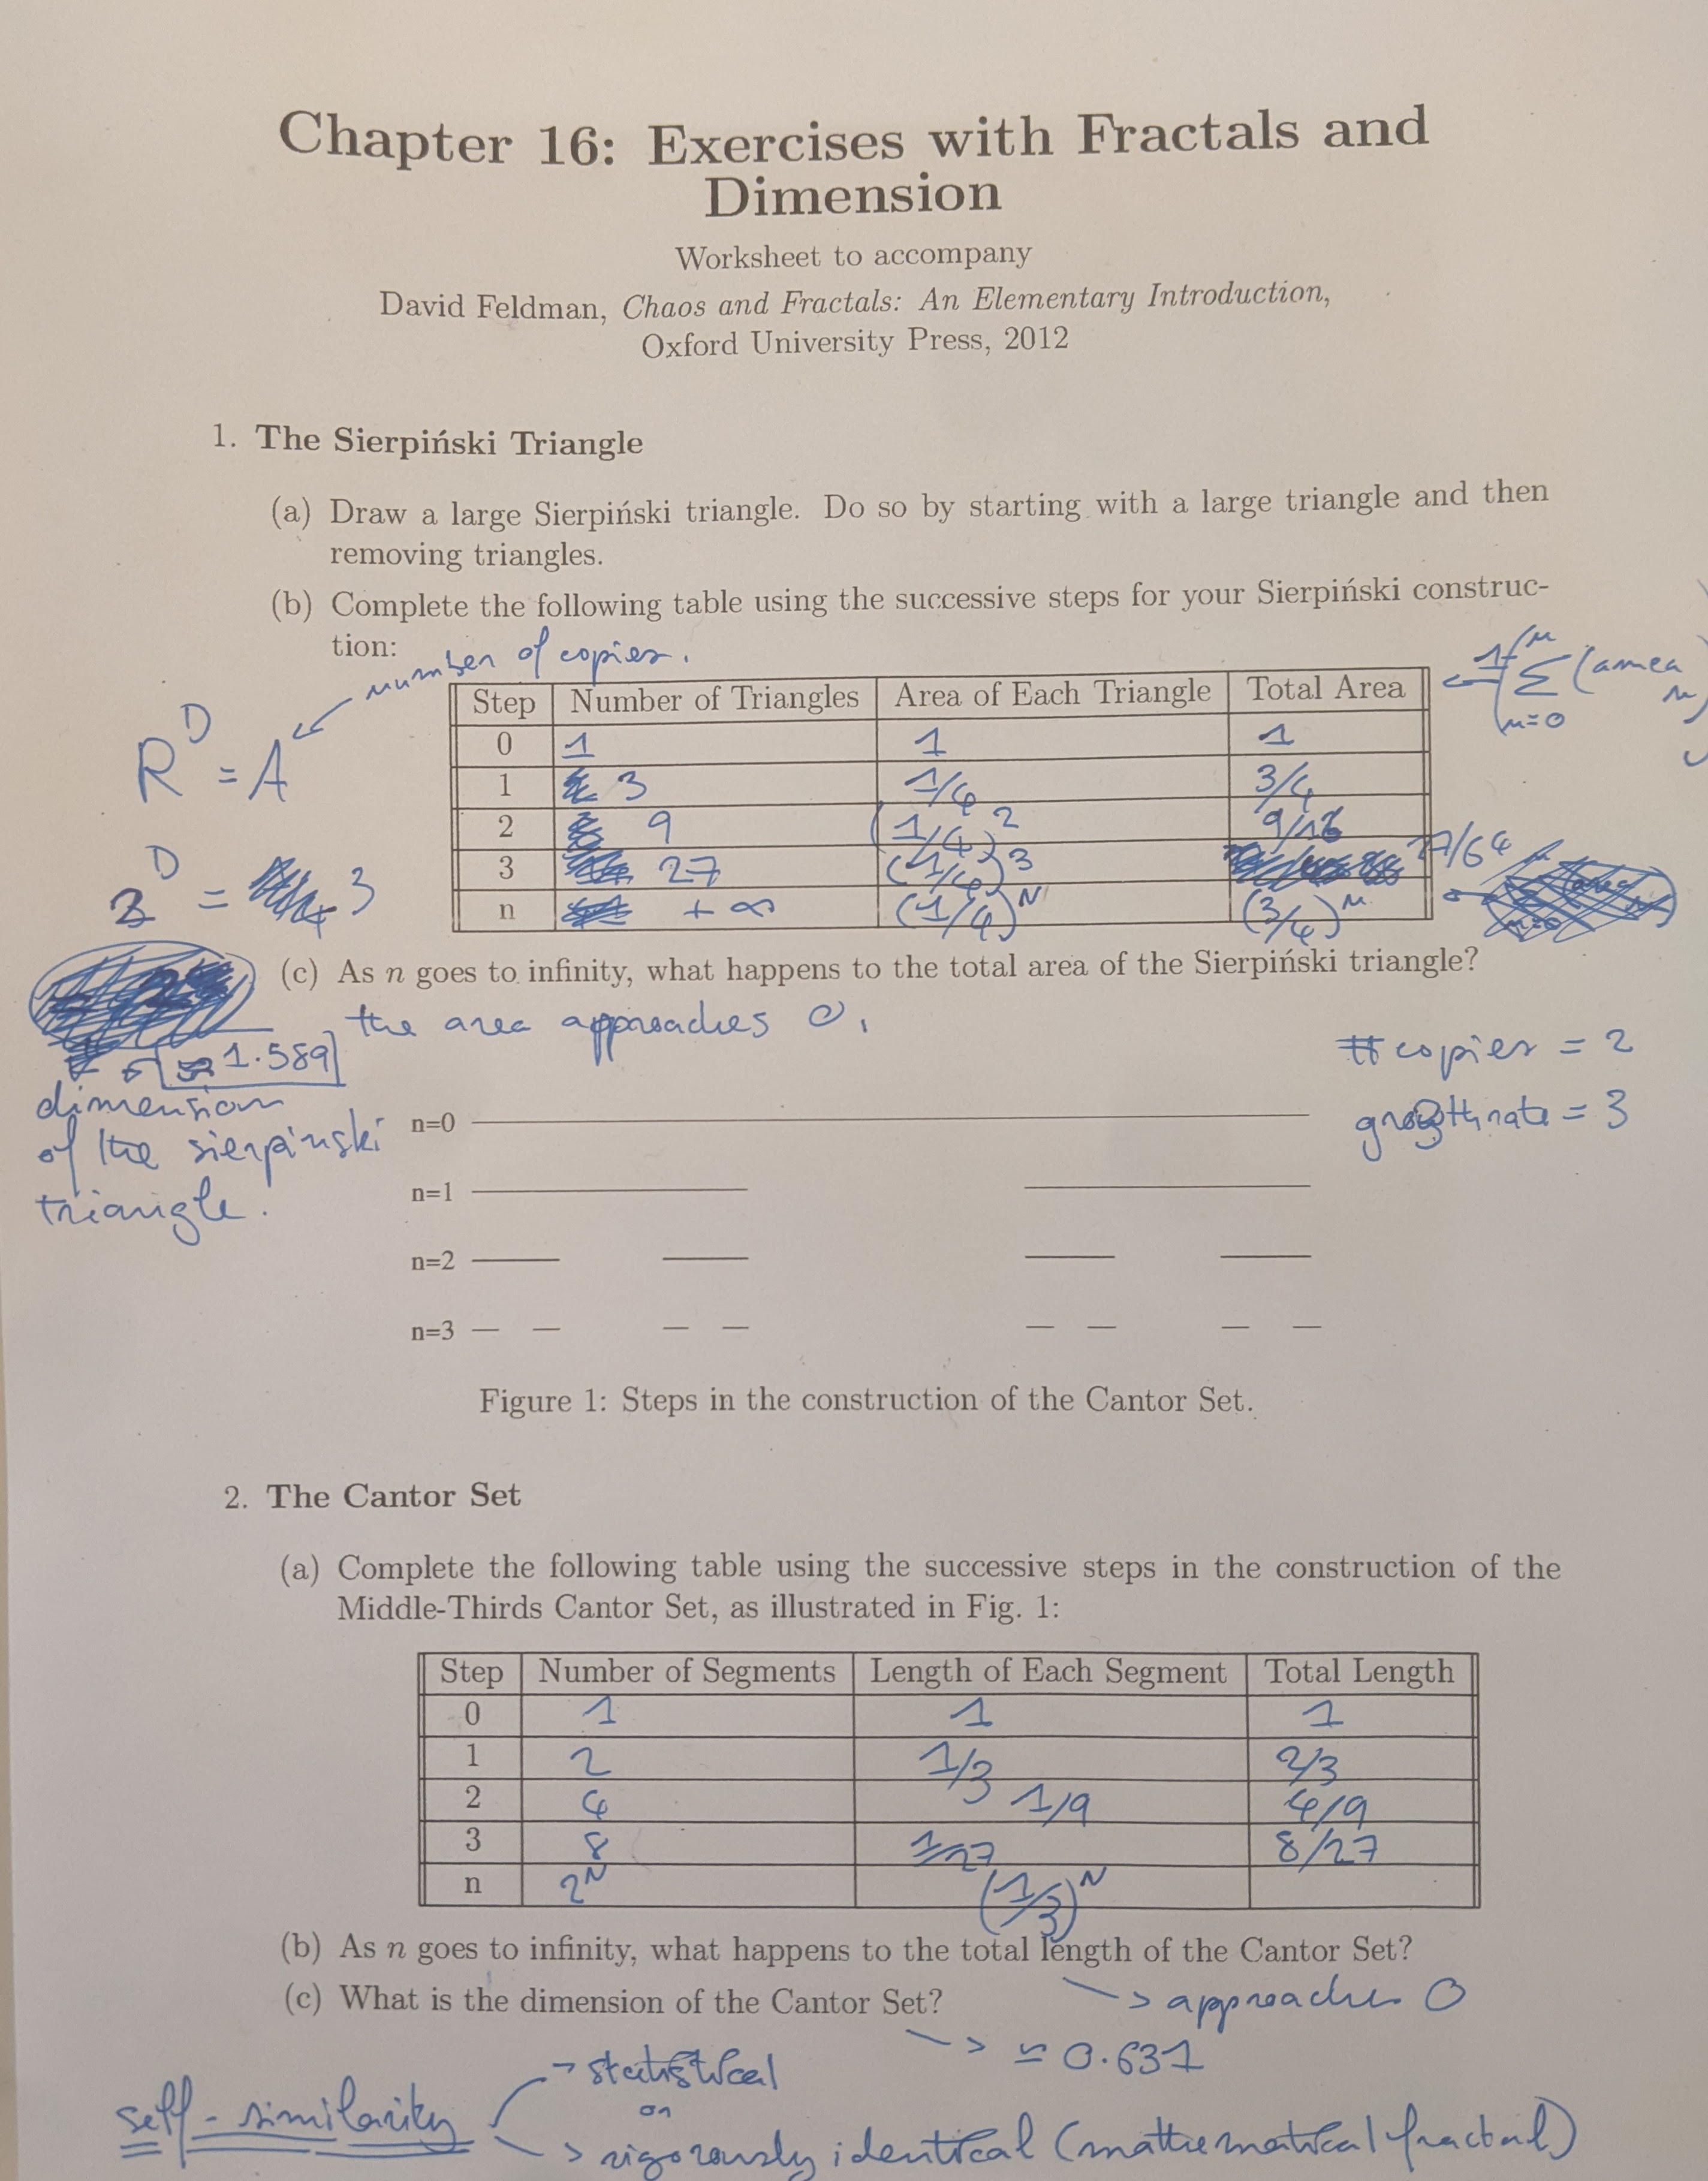 Chapter 16: Exercises with Fractals and
Dimension
Worksheet to accompany
David Feldman, Chaos and Fractals: An Elementary Introduction,
Oxford University Press, 2012
1. The Sierpiński Triangle
(a) Draw a large Sierpiński triangle. Do so by starting with a large triangle and then
removing triangles.
(b) Complete the following table using the successive steps for your Sierpiński construc-
tion:
number of copies.
R^D = A
Step Number of Triangles Area of Each Triangle Total Area
0 1 1 1
1 3 1/4 3/4
2 9 (1/4)^2 9/16
3 27 (1/4)^3 27/64
n + ∞ (1/4)^N (3/4)^n
(c) As n goes to infinity, what happens to the total area of the Sierpiński triangle?
the area approaches 0.
≈ 1.589
dimension
of the sierpinski
triangle.
# copies = 2
growth rate = 3
n=0
n=1
n=2
n=3
Figure 1: Steps in the construction of the Cantor Set.
2. The Cantor Set
(a) Complete the following table using the successive steps in the construction of the
Middle-Thirds Cantor Set, as illustrated in Fig. 1:
Step Number of Segments Length of Each Segment Total Length
0 1 1 1
1 2 1/3 2/3
2 4 1/9 4/9
3 8 1/27 8/27
n 2^N (1/3)^N
(b) As n goes to infinity, what happens to the total length of the Cantor Set?
(c) What is the dimension of the Cantor Set?
→ approaches 0
→ ≃ 0.631
self-similarity
→ statistical
or
→ rigorously identical (mathematical fractal)